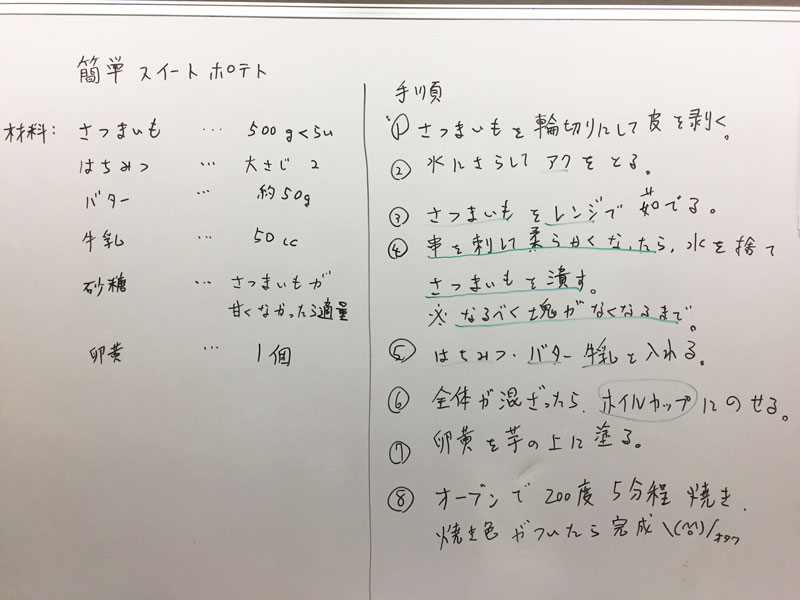 簡単 スイートポテト
材料: さつまいも … 500gくらい
はちみつ … 大さじ 2
バター … 約50g
牛乳 … 50cc
砂糖 … さつまいもが
甘くなかったら適量
卵黄 … 1個
手順
① さつまいもを輪切りにして皮を剥く。
② 水にさらしてアクをとる。
③ さつまいもをレンジで茹でる。
④ 串を刺して柔らかくなったら、水を捨て
さつまいもを潰す。
※なるべく塊がなくなるまで。
⑤ はちみつ・バター 牛乳を入れる。
⑥ 全体が混ざったら、ホイルカップにのせる。
⑦ 卵黄を芋の上に塗る。
⑧ オーブンで 200度 5分程 焼き、
焼き色がついたら完成